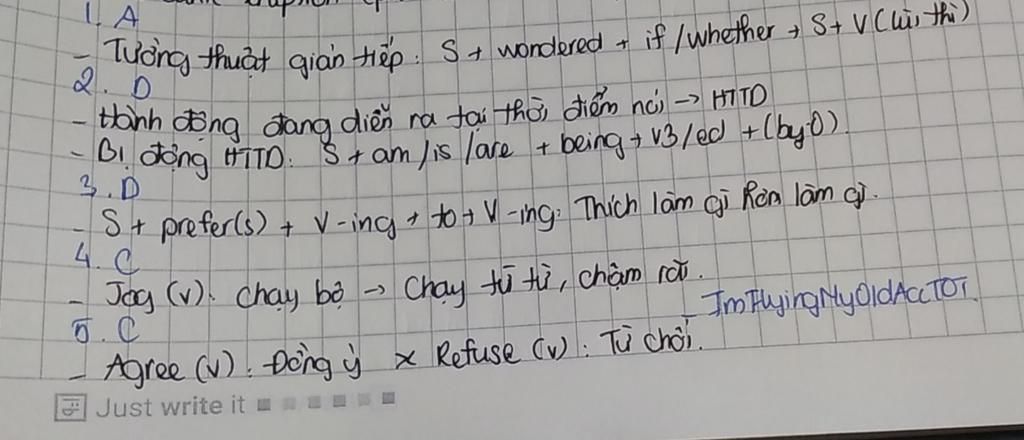 1. A
- Tường thuật gián tiếp: S + wondered + if /whether + S + V (lùi thì)
2. D
- Hành động đang diễn ra tại thời điểm nói → HTTD
- Bị động HTTD: S + am /is /are + being + V3/ed + (by O)
3. D
- S + prefer(s) + V-ing + to + V-ing: Thích làm gì hơn làm gì.
4. C
- Jog (v): chạy bộ → Chạy từ từ, chậm rãi.
- ImFlyingMyOldAccTOT
5. C
- Agree (v): Đồng ý x Refuse (v): Từ chối.
Just write it